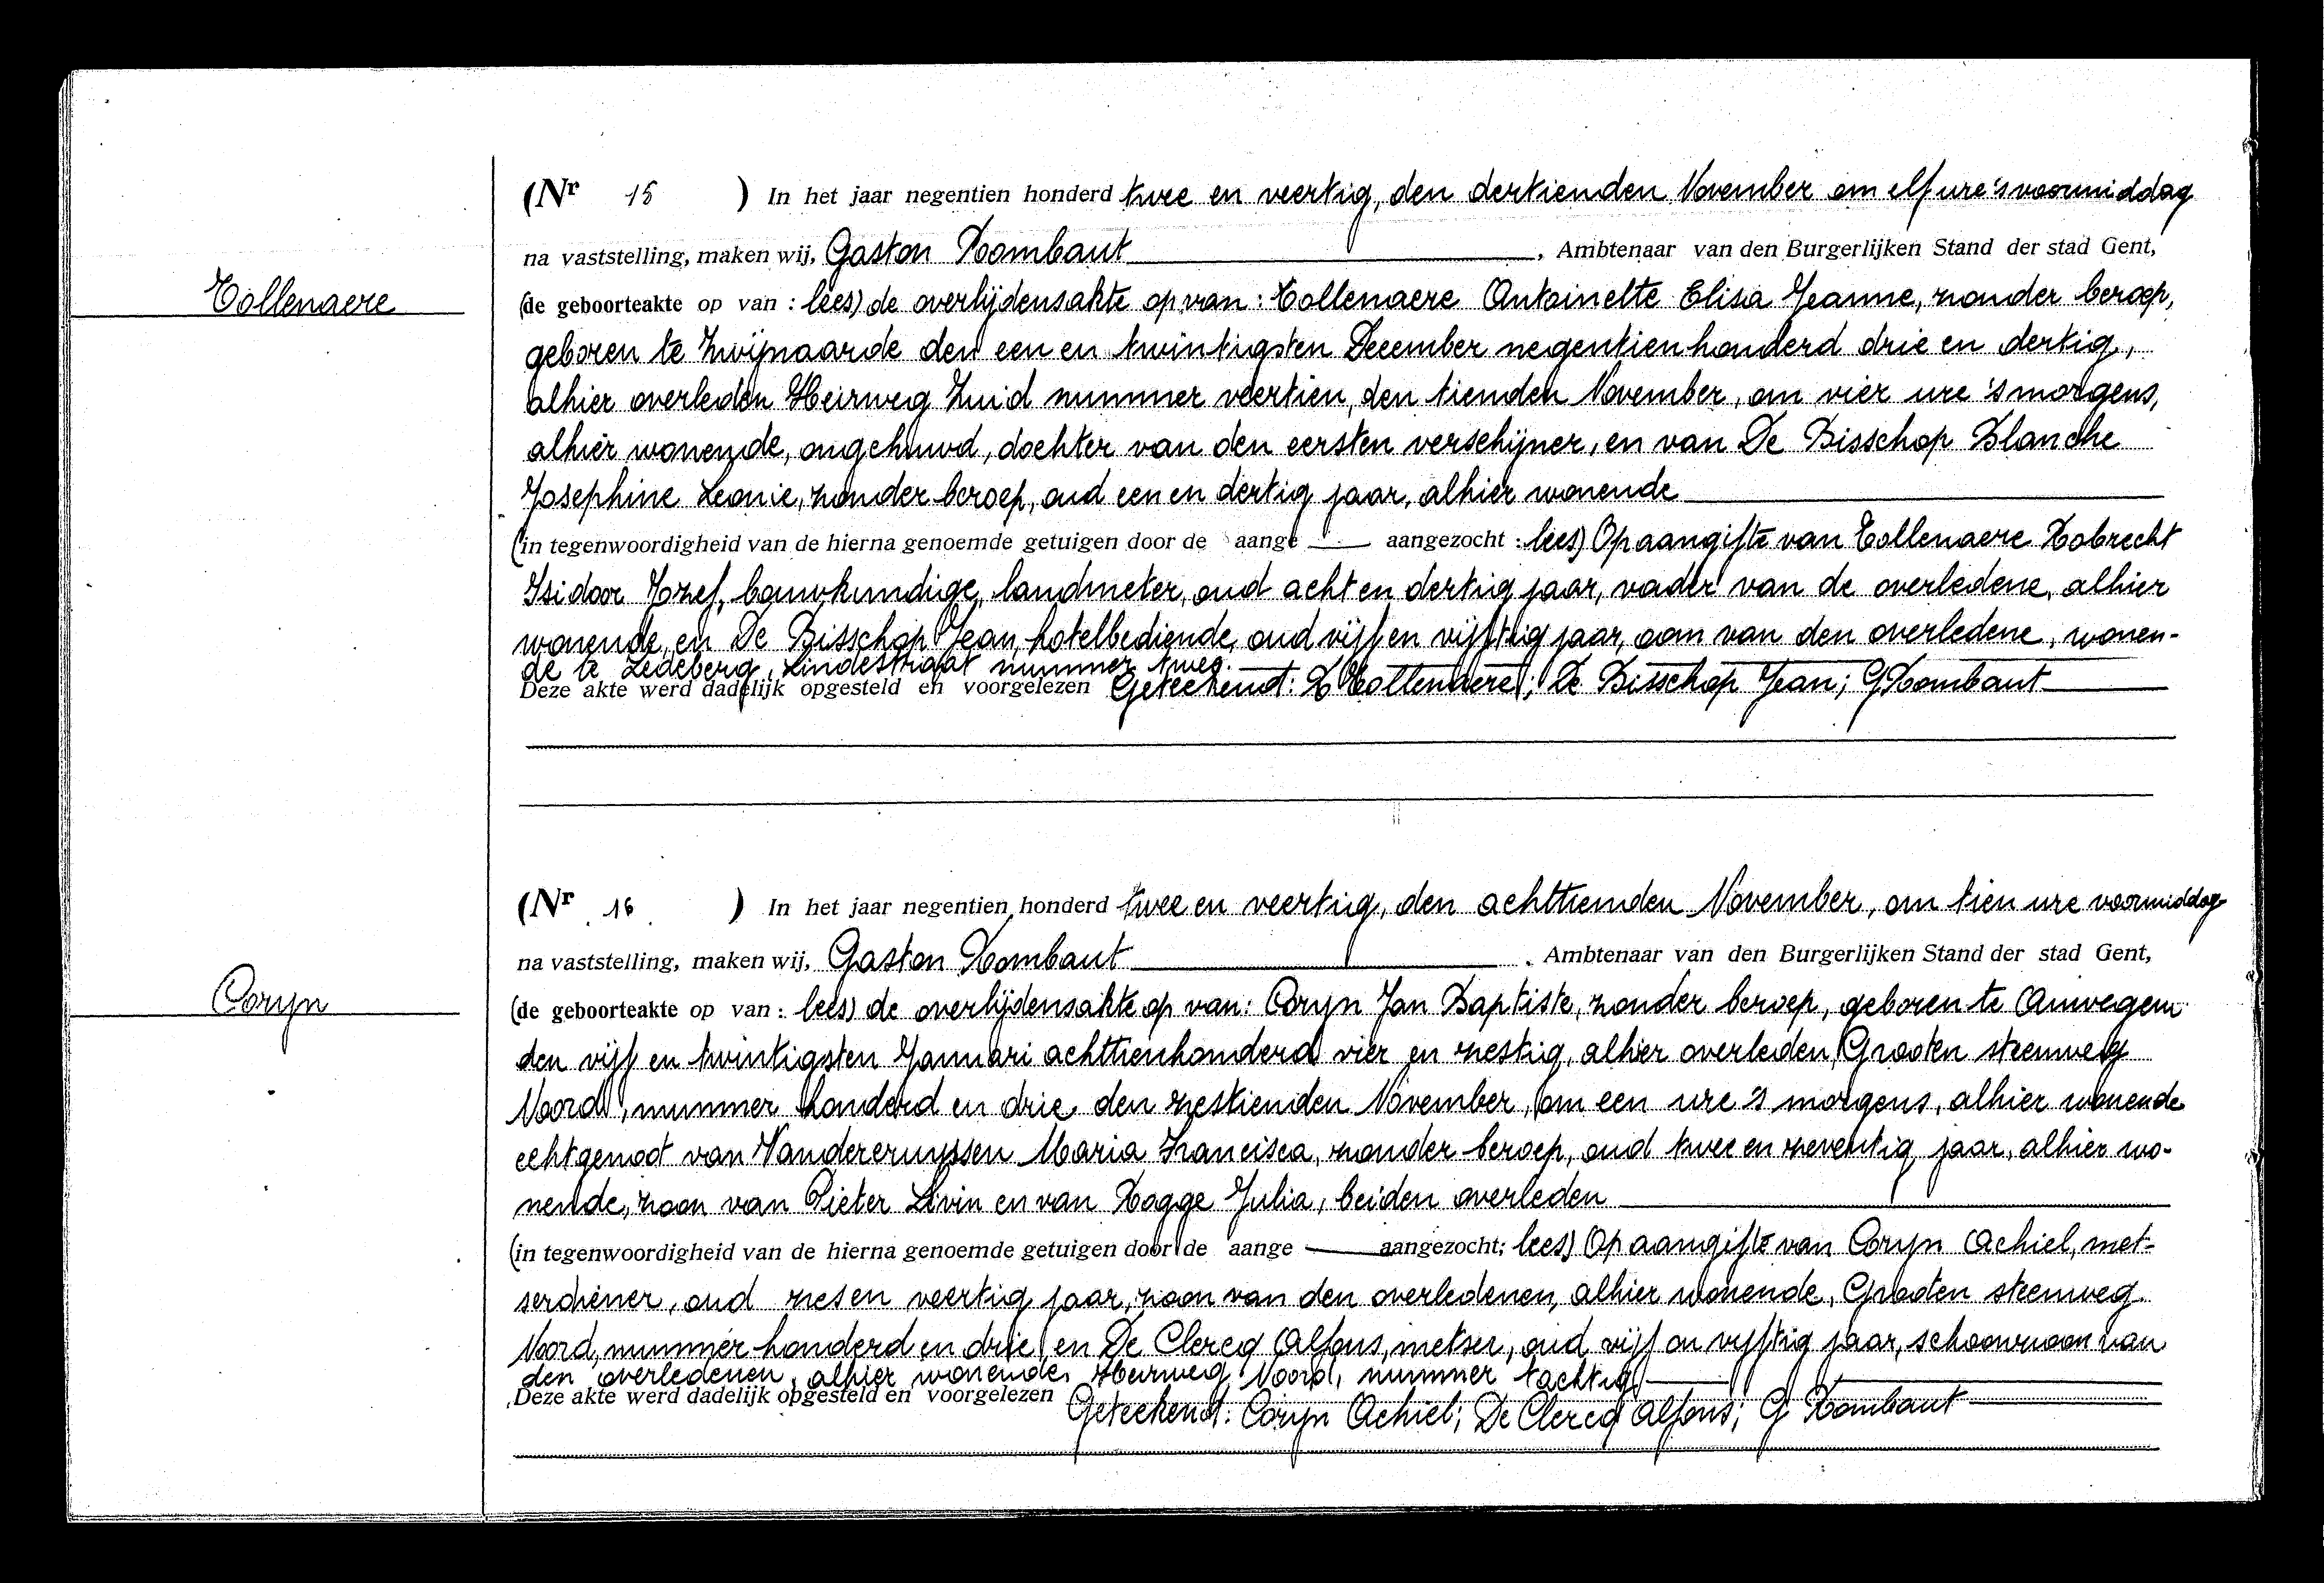 (Nr 15 ) In het jaar negentien honderd twee en veertig, den dertienden November om elf ure 's voormiddag
na vaststelling, maken wij, Gaston Rombaut , Ambtenaar van den Burgerlijken Stand der stad Gent,
Collenaere
(de geboorteakte op van : lees) de overlijdensakte op van : Collenaere Antoinette Elisa Jeanne, zonder beroep,
geboren te Zwijnaarde den een en twintigsten December negentienhonderd drie en dertig,
alhier overleden Heirweg Zuid nummer veertien, den tienden November, om vier ure 's morgens,
alhier wonende, ongehuwd, dochter van den eersten verschijner, en van De Bisschop Blanche
Josephine Leonie, zonder beroep, oud een en dertig jaar, alhier wonende
(in tegenwoordigheid van de hierna genoemde getuigen door de aange aangezocht : lees) Op aangifte van Collenaere Robrecht
Isidoor Jozef, bouwkundige, landmeter, oud acht en dertig jaar, vader van de overledene, alhier
wonende, en De Bisschop Jean, hotelbediende, oud vijf en vijftig jaar, oom van den overledene, wonen-
de te Ledeberg, Lindestraat nummer twee.
Deze akte werd dadelijk opgesteld en voorgelezen Geteekend: R Collenaere; De Bisschop Jean; G Rombaut
(Nr 16 ) In het jaar negentien honderd twee en veertig, den achttienden November, om tien ure voormiddag
na vaststelling, maken wij, Gaston Rombaut , Ambtenaar van den Burgerlijken Stand der stad Gent,
Coryn
(de geboorteakte op van : lees) de overlijdensakte op van : Coryn Jan Baptiste, zonder beroep, geboren te Auwegem
den vijf en twintigsten Januari achttienhonderd vier en zestig, alhier overleden Grooten steenweg
Noord, nummer honderd en drie, den zestienden November, om een ure 's morgens, alhier wonende
echtgenoot van Vandercruyssen Maria Francisca, zonder beroep, oud twee en zeventig jaar, alhier wo-
nende, zoon van Pieter Livin en van Rogge Julia, beiden overleden
(in tegenwoordigheid van de hierna genoemde getuigen door de aange aangezocht; lees) Op aangifte van Coryn Achiel, met-
serdiener, oud zes en veertig jaar, zoon van den overledenen, alhier wonende, Grooten steenweg
Noord, nummer honderd en drie, en De Clercq Alfons, metser, oud vijf en vijftig jaar, schoonzoon van
den overledenen, alhier wonende, Heirweg Noord, nummer tachtig
Deze akte werd dadelijk opgesteld en voorgelezen Geteekend: Coryn Achiel; De Clercq Alfons; G Rombaut